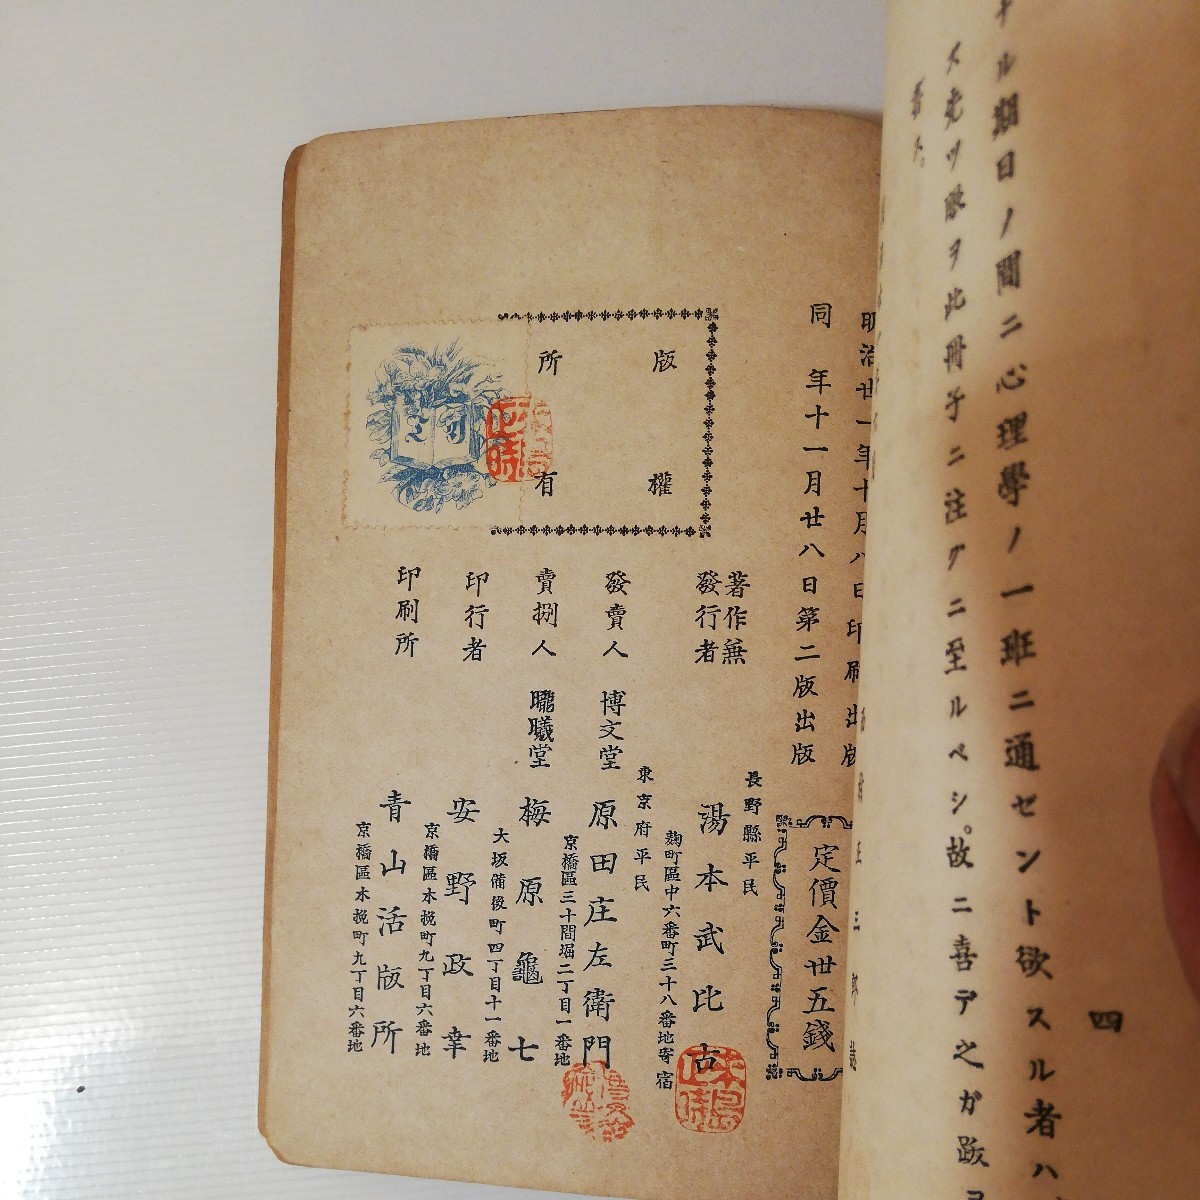 ナル期日ノ間ニ心理學ノ一班ニ通ゼント欲スル者ハ
メ先ツ眼ヲ此冊子ニ注グニ至ルベシ。故ニ喜デ之ガ跋ヲ
四
明治廿一年十月八日印刷出版
同 年十一月廿八日第二版出版
定價金卅五錢
版權
所有
著作兼
發行者
長野縣平民
湯本武比古
麹町區中六番町三十八番地寄宿
發賣人
東京府平民
博文堂 原田庄左衛門
京橋區三十間堀二丁目一番地
賣捌人
曨曦堂 梅原龜七
大坂備後町四丁目十一番地
印行者
安野政幸
京橋區木挽町九丁目六番地
印刷所
青山活版所
京橋區木挽町九丁目六番地